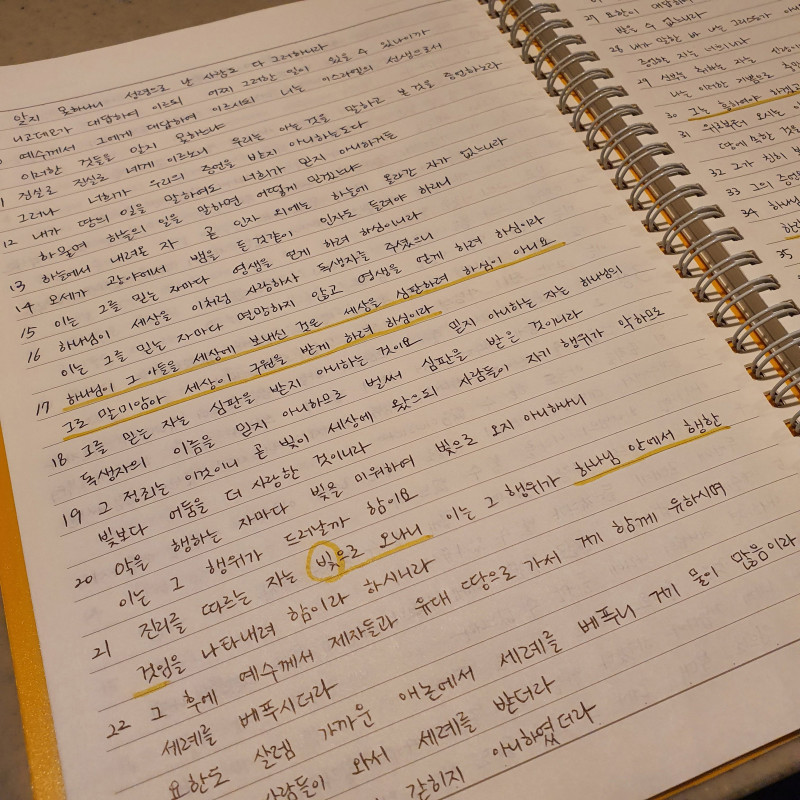 알지 못하나니 성령으로 난 사람도 다 그러하니라
니고데모가 대답하여 이르되 어찌 그러한 일이 있을 수 있나이까
예수께서 그에게 대답하여 이르시되 너는 이스라엘의 선생으로서
이러한 것들을 알지 못하느냐
진실로 진실로 네게 이르노니 우리는 아는 것을 말하고 본 것을 증언하노라
그러나 너희가 우리의 증언을 받지 아니하는도다
12 내가 땅의 일을 말하여도 너희가 믿지 아니하거든
하물며 하늘의 일을 말하면 어떻게 믿겠느냐
13 하늘에서 내려온 자 곧 인자 외에는 하늘에 올라간 자가 없느니라
14 모세가 광야에서 뱀을 든 것같이 인자도 들려야 하리니
15 이는 그를 믿는 자마다 영생을 얻게 하려 하심이니라
16 하나님이 세상을 이처럼 사랑하사 독생자를 주셨으니
이는 그를 믿는 자마다 멸망하지 않고 영생을 얻게 하려 하심이라
17 하나님이 그 아들을 세상에 보내신 것은 세상을 심판하려 하심이 아니요
그로 말미암아 세상이 구원을 받게 하려 하심이라
18 그를 믿는 자는 심판을 받지 아니하는 것이요 믿지 아니하는 자는 하나님의
독생자의 이름을 믿지 아니하므로 벌써 심판을 받은 것이니라
19 그 정죄는 이것이니 곧 빛이 세상에 왔으되 사람들이 자기 행위가 악하므로
빛보다 어둠을 더 사랑한 것이니라
20 악을 행하는 자마다 빛을 미워하여 빛으로 오지 아니하나니
이는 그 행위가 드러날까 함이요
21 진리를 따르는 자는 빛으로 오나니 이는 그 행위가 하나님 안에서 행한
것임을 나타내려 함이라 하시니라
22 그 후에 예수께서 제자들과 유대 땅으로 가서 거기 함께 유하시며
세례를 베푸시더라
요한도 살렘 가까운 애논에서 세례를 베푸니 거기 물이 많음이라
사람들이 와서 세례를 받더라
갇히지 아니하였더라
29
받을 수 없느니라
28 내가 말한 바 나는 그리스도가
증언할 자는 너희니라
29 신부를 취하는 자는
나는 이러한 기쁨으로
30 그는 흥하여야 하겠고
31 위로부터 오시는
땅에 속한 것을
32 그가 친히
33 그의 증언을
34
35